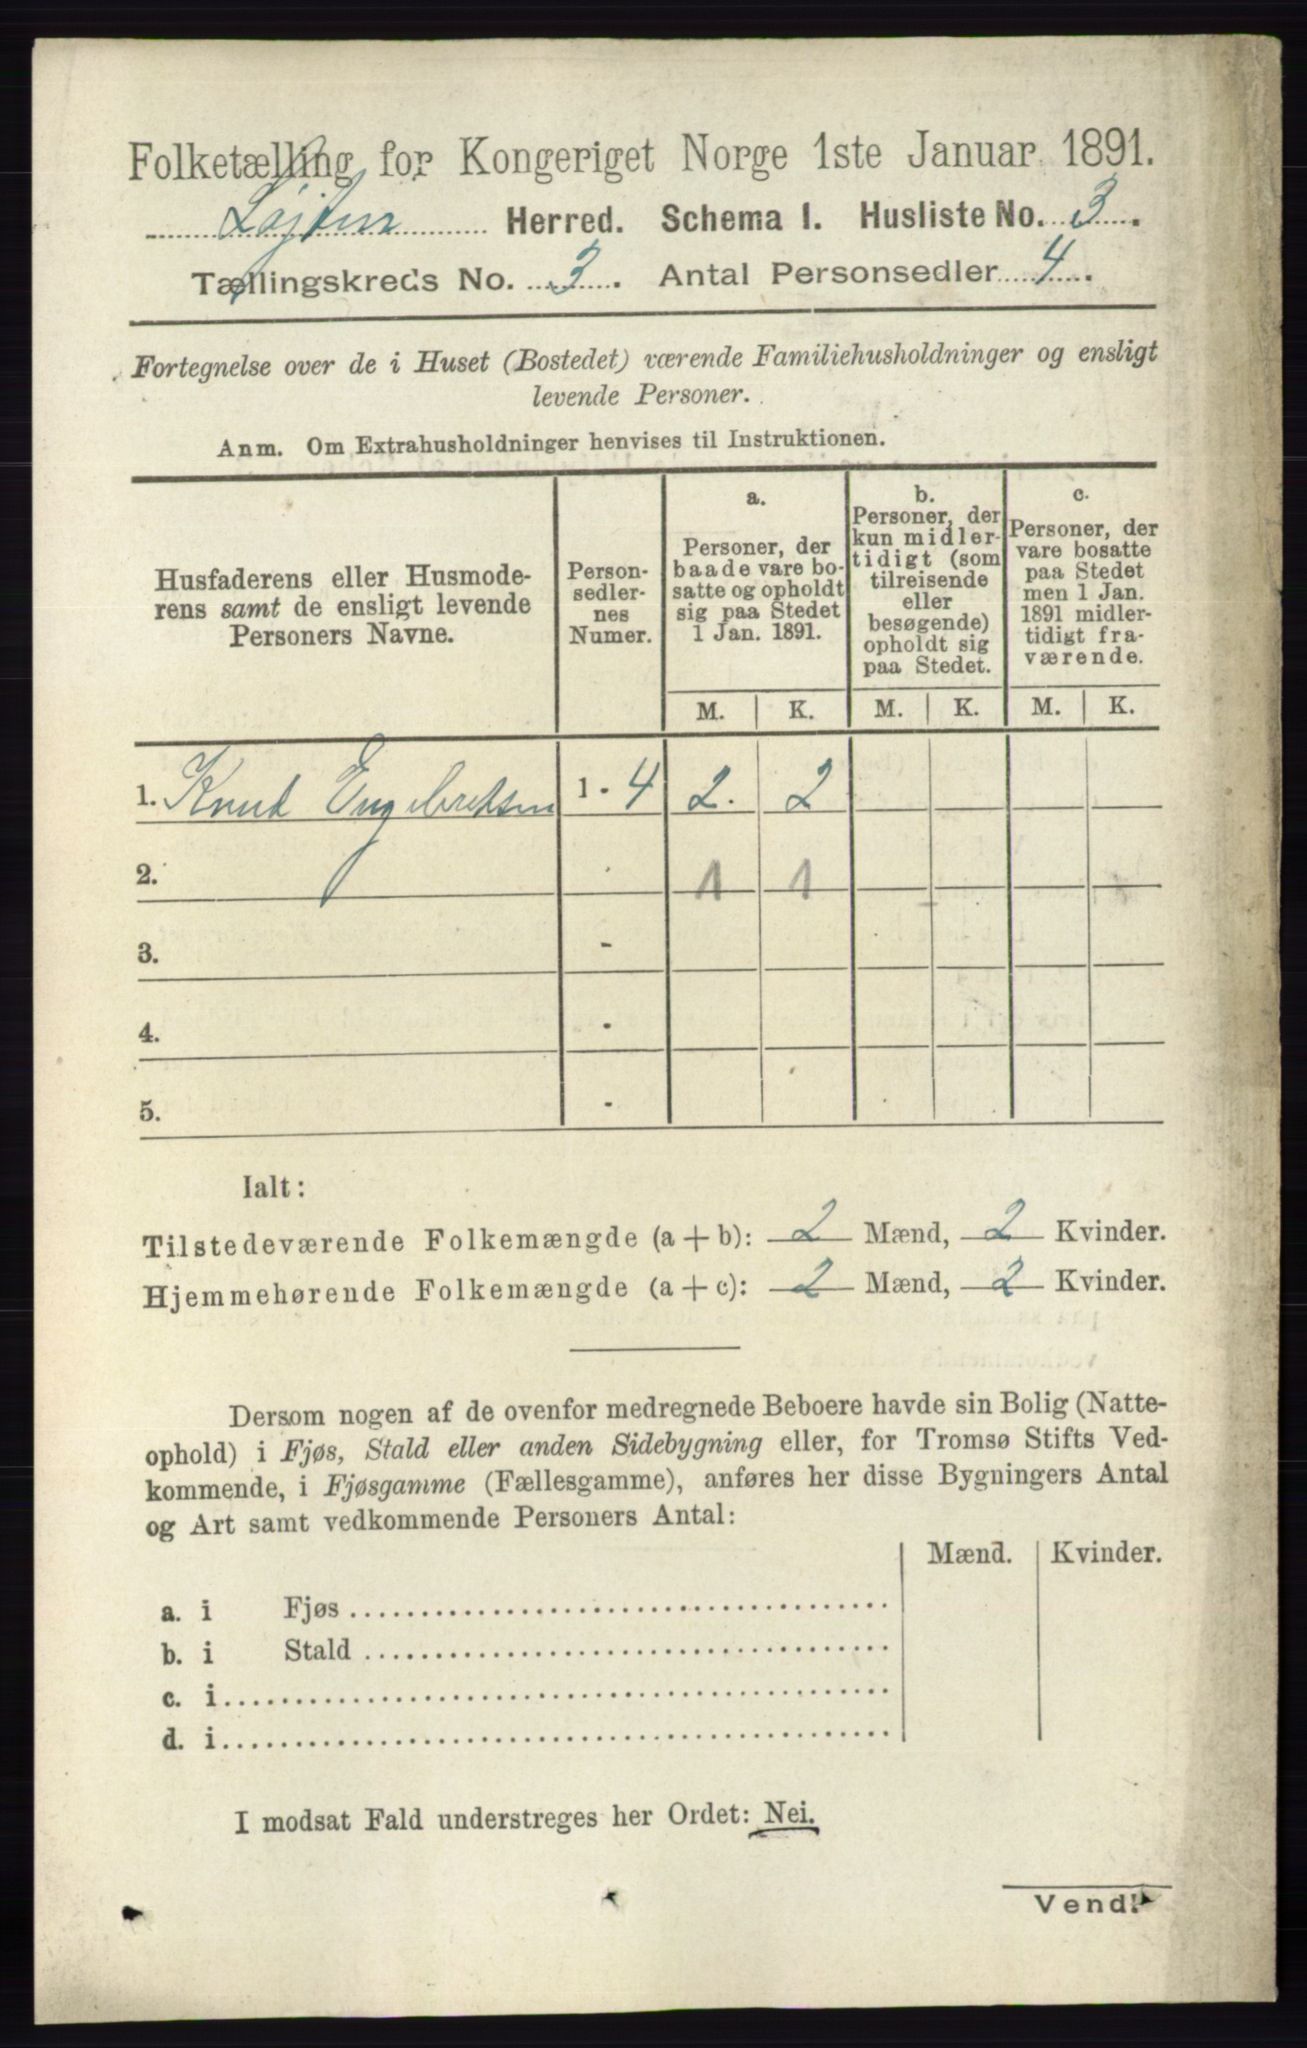 Folketælling for Kongeriget Norge 1ste Januar 1891.
Løjten Herred. Schema I. Husliste No. 3.
Tællingskreds No. 3. Antal Personsedler 4.
Fortegnelse over de i Huset (Bostedet) værende Familiehusholdninger og ensligt
levende Personer.
Anm. Om Extrahusholdninger henvises til Instruktionen.
Husfaderens eller Husmode-
rens samt de ensligt levende
Personers Navne.
Person-
sedler-
nes
Numer.
a.
Personer, der
baade vare bo-
satte og opholdt
sig paa Stedet
1 Jan. 1891.
b.
Personer, der
kun midler-
tidigt (som
tilreisende
eller
besøgende)
opholdt sig
paa Stedet.
c.
Personer, der
vare bosatte
paa Stedet
men 1 Jan.
1891 midler-
tidigt fra-
værende.
M. K. M. K. M. K.
1. Knud Engebretsen 1 - 4 2. 2
2. 1 1
3. -
4. -
5. -
Ialt:
Tilstedeværende Folkemængde (a + b): 2 Mænd, 2 Kvinder.
Hjemmehørende Folkemængde (a + c): 2 Mænd, 2 Kvinder.
Dersom nogen af de ovenfor medregnede Beboere havde sin Bolig (Natte-
ophold) i Fjøs, Stald eller anden Sidebygning eller, for Tromsø Stifts Ved-
kommende, i Fjøsgamme (Fællesgamme), anføres her disse Bygningers Antal
og Art samt vedkommende Personers Antal:
Mænd. Kvinder.
a. i Fjøs
b. i Stald
c. i
d. i
I modsat Fald understreges her Ordet: Nei.
Vend!